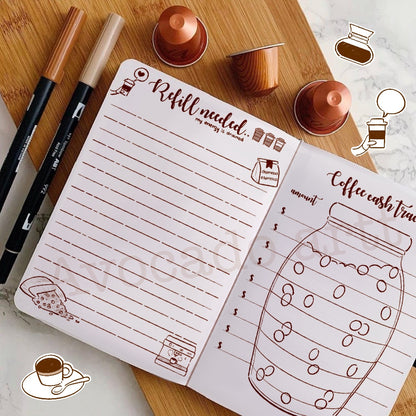 Refill needed..
my energy is drained
Coffee cash trac
amount
$
$
$
$
$
$
$
$
Avocado arti